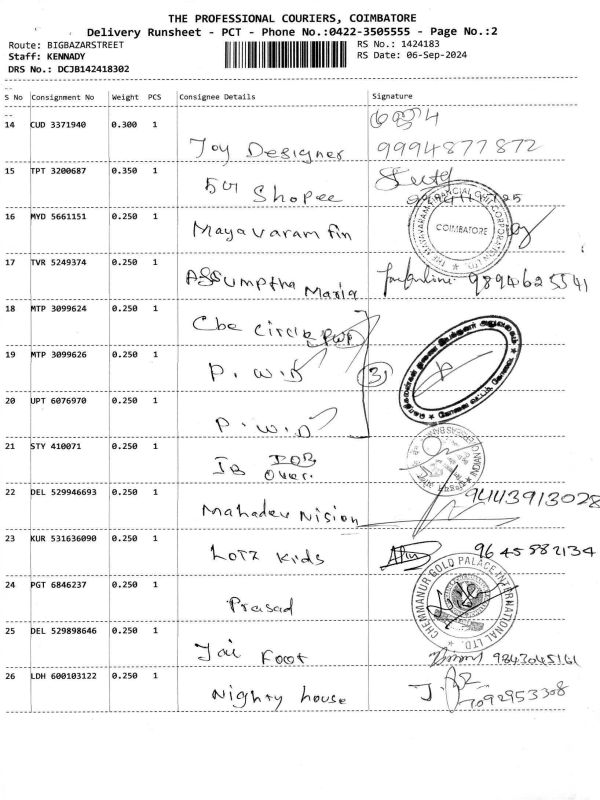 THE PROFESSIONAL COURIERS, COIMBATORE
Delivery Runsheet - PCT - Phone No.:0422-3505555 - Page No.:2
Route: BIGBAZARSTREET RS No.: 1424183
Staff: KENNADY RS Date: 06-Sep-2024
DRS No.: DCJB142418302
S No Consignment No Weight PCS Consignee Details Signature
14 CUD 3371940 0.300 1
Joy Designer 9994877872
15 TPT 3200687 0.350 1
Shopee
16 MYD 5661151 0.250 1
Mayavaram fin
COIMBATORE
17 TVR 5249374 0.250 1
Assumptha Maria 9894625541
18 MTP 3099624 0.250 1
Cbe circle pwp
19 MTP 3099626 0.250 1
P.W.D 31
20 UPT 6076970 0.250 1
P.W.D
21 STY 410071 0.250 1
IB IOB
Over.
22 DEL 529946693 0.250 1
Mahadev Nision 9443913028
23 KUR 531636090 0.250 1
Lotz kids 9645582134
24 PGT 6846237 0.250 1
Prasad
CHEMMANUR GOLD PALACE INTERNATIONAL LTD.
25 DEL 529898646 0.250 1
Jai Foot 9843045161
26 LDH 600103122 0.250 1
Nighty house 7092953308